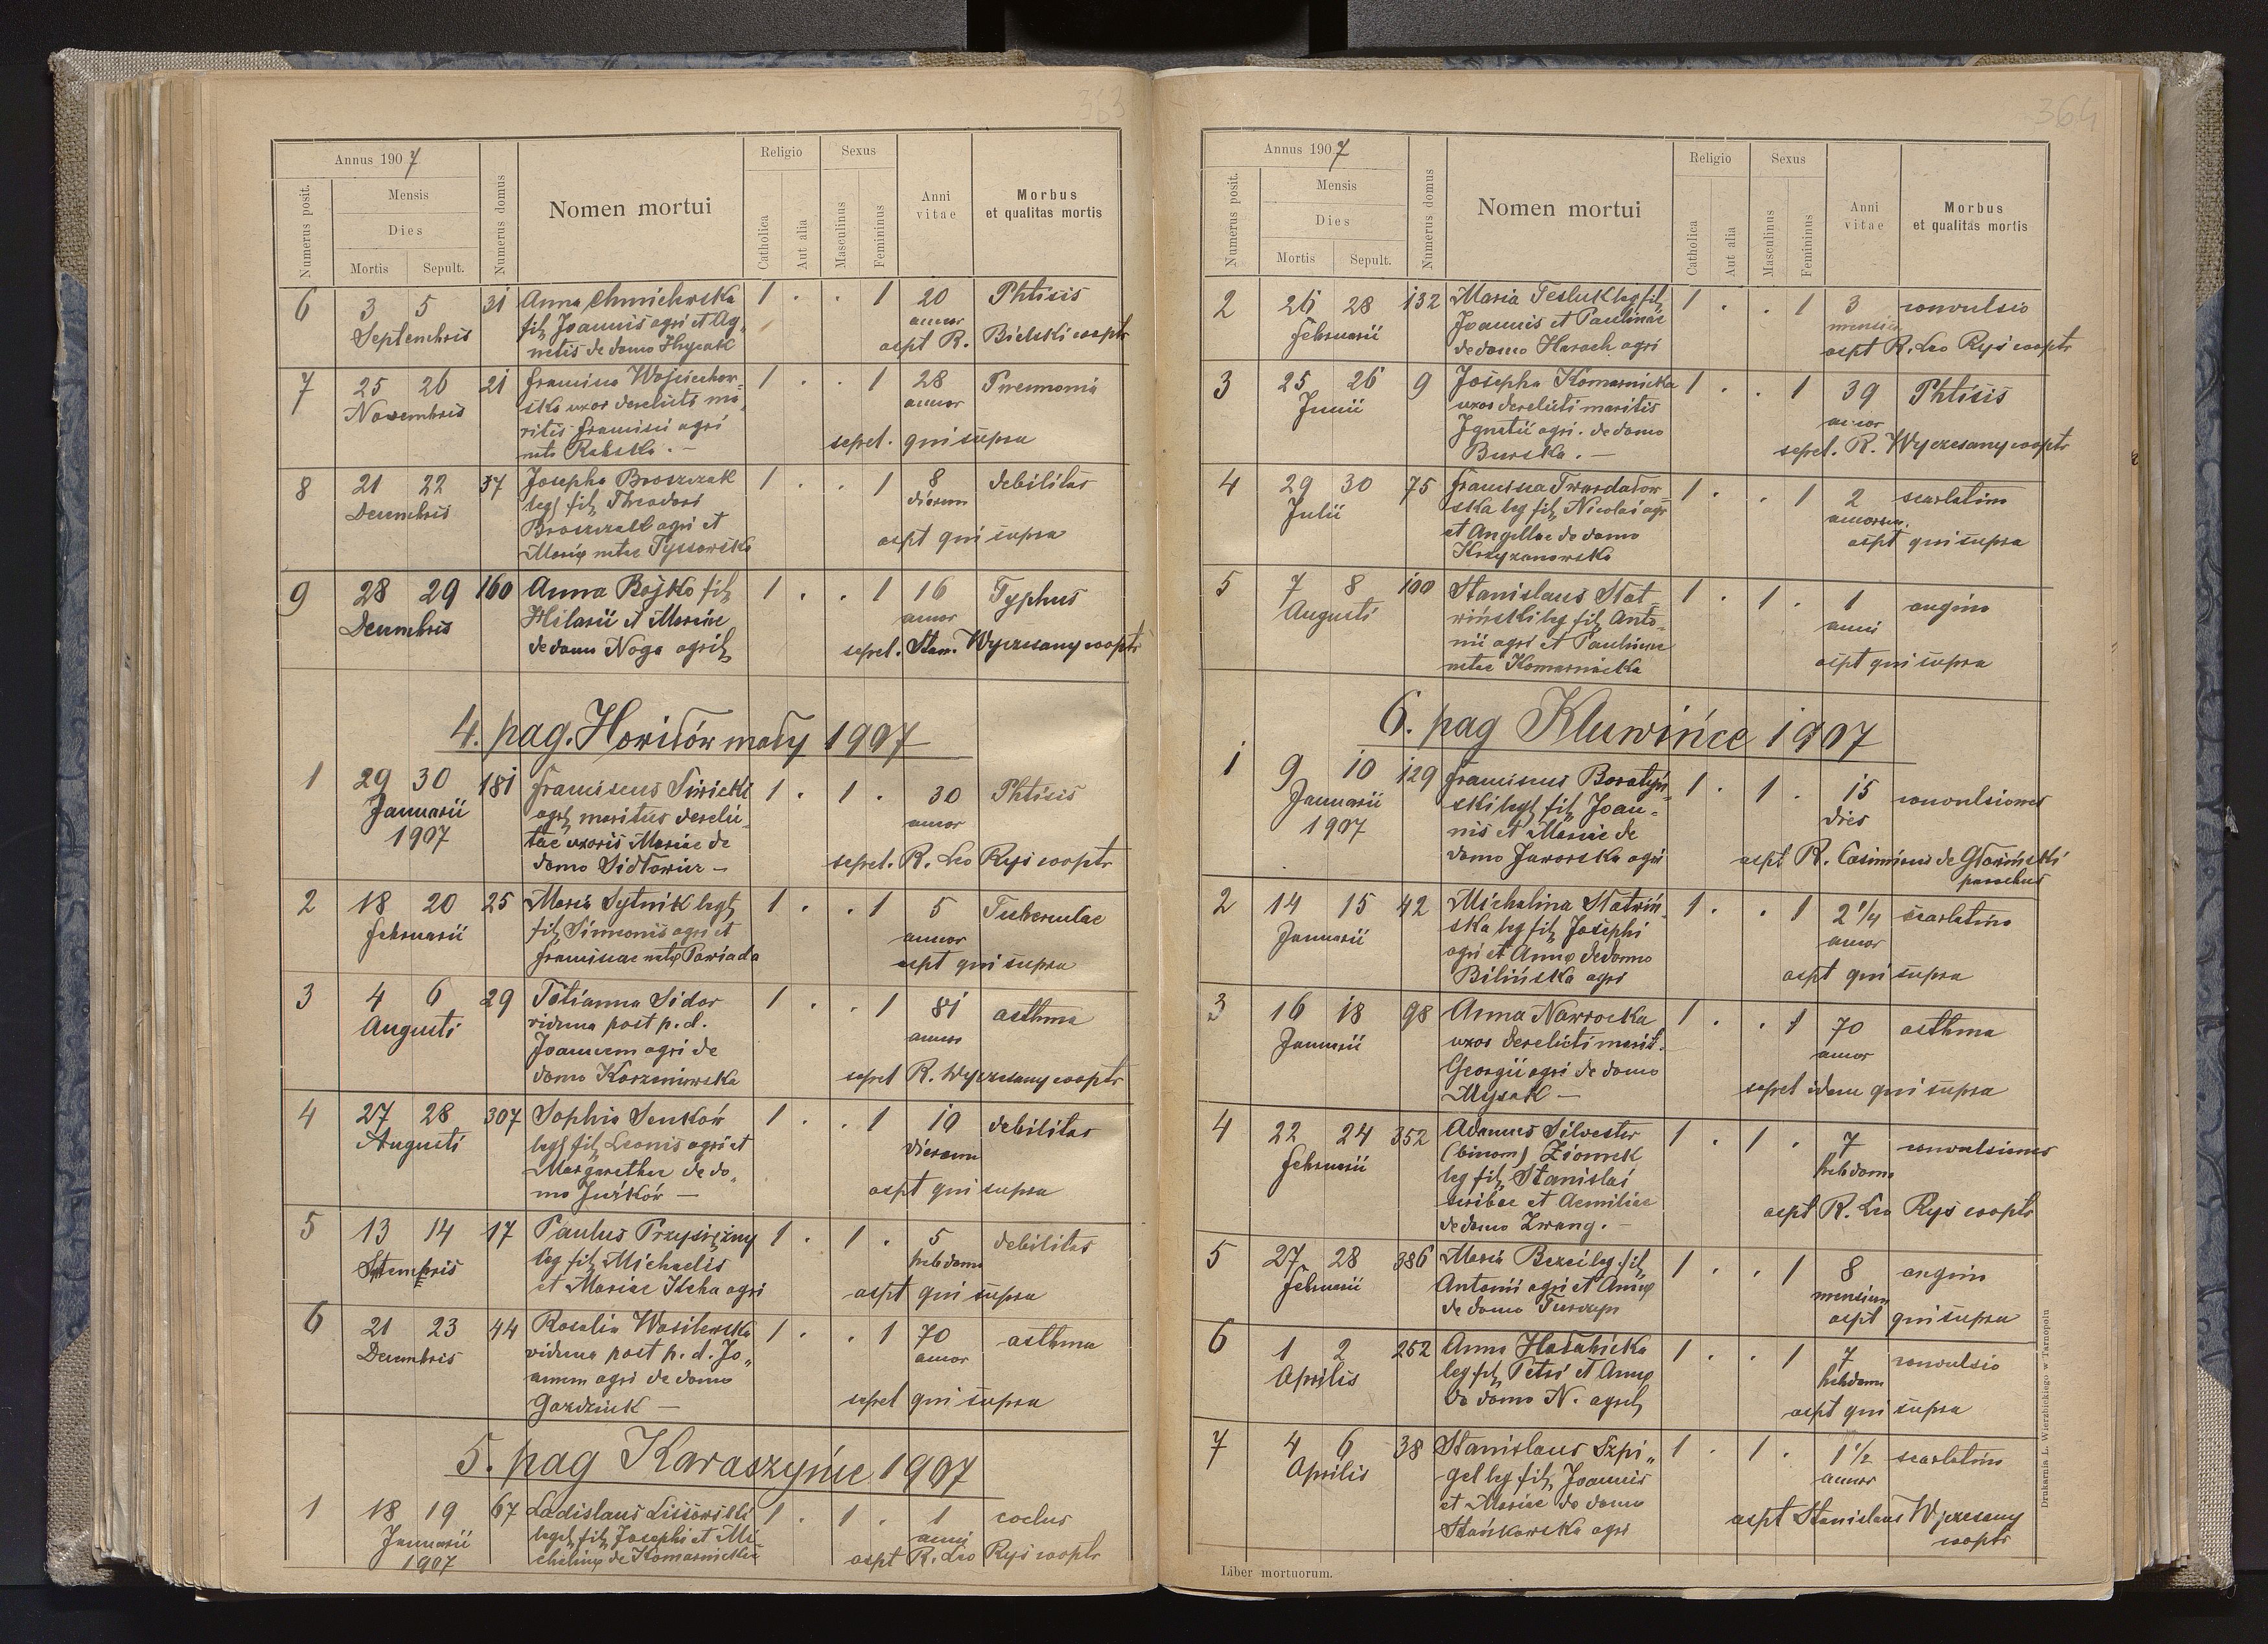 363
Annus 1907
Numerus posit.
Mensis
Dies
Mortis
Sepult.
Numerus domus
Nomen mortui
Religio
Catholica
Aut alia
Sexus
Masculinus
Femininus
Anni vitae
Morbus
et qualitas mortis
6 3 5 31 Anna Chmielewska 1 . . 1 20 Phtisis
Septembris filt Joannis agri et Ag- annor
netis de domo Hrycak aspt R. Bielski cooptr
7 25 26 21 Francisca Wojciechow- 1 . . 1 28 Pneumonia
Novembris ska uxor derelicti ma- annor
ritis Francisci agri sepel. qui supra
nata Rabska . —
8 21 22 37 Josepha Broszczak 1 . . 1 8 debilitas
Decembris legt filt Theodori dierum
Broszczak agri et aspt qui supra
Mariae natae Tyssowska
9 28 29 160 Anna Bojko filt 1 . . 1 16 Typhus
Decembris Hilarii et Mariae annor
de domo Noga agril sepel. Stan. Wyczesany cooptr
4. pag. Howiłów mały 1907
1 29 30 181 Franciscus Siwicki 1 . 1 . 30 Phtisis
Januarii agril maritus derelic- annor
1907 tae uxoris Mariae de
domo Sidłowicz — sepel. R. Leo Ryś cooptr
2 18 20 25 Maria Sytnik legt 1 . . 1 5 Tuberculae
Februarii filt Simeonis agri et annor
Franciscae natae Pawiada aspt qui supra
3 4 6 29 Tatianna Sidor 1 . . 1 81 asthma
Augusti vidua post p. d. annor
Joannem agri de
domo Korzeniowska sepel R. Wyczesany cooptr
4 27 28 307 Sophia Senków 1 . . 1 10 debilitas
Augusti legt filt Leonis agri et dierum
Margarethae de do-
mo Jurków — aspt qui supra
5 13 14 17 Paulus Przysiężny 1 . 1 . 5 debilitas
Septembris leg filt Michaelis hebdom
et Mariae Ilcha agri aspt qui supra
6 21 23 44 Rosalia Wasilewska 1 . . 1 70 asthma
Decembris vidua post p. d. Jo- annor
annem agri de domo
Gazdziuk — sepel qui supra
5. pag Karaszyńce 1907
1 18 19 67 Ladislaus Lisowski 1 . 1 . 1 coclus
Januarii legt filt Josephi et Mi- anni
1907 chelinae de Komarnicka aspt R. Leo Ryś cooptr
364
Annus 1907
Numerus posit.
Mensis
Dies
Mortis
Sepult.
Numerus domus
Nomen mortui
Religio
Catholica
Aut alia
Sexus
Masculinus
Femininus
Anni vitae
Morbus
et qualitas mortis
2 26 28 132 Maria Tesluk leg filt 1 . . 1 3 convulsio
Februarii Joannis et Paulinae mensium
de domo Harach agri aspt R. Leo Ryś cooptr
3 25 26 9 Josepha Komarnicka 1 . . 1 39 Phtisis
Junii uxor derelicti maritis annor
Ignatii agri . de domo sepel. R. Wyczesany cooptr
Burska . —
4 29 30 75 Francisca Twardadow- 1 . . 1 2 scarlatina
Julii ska leg filt Nicolai agr annorum.
et Angellae de domo aspt qui supra
Krzyzanowska
5 7 8 100 Stanislaus Stat- 1 . 1 . 1 angina
Augusti wiński leg filt Anto- anni
nii agri et Paulinae
natae Komarnicka aspt qui supra
6. pag Kluwińce 1907
1 9 10 129 Franciscus Boratyń- 1 . 1 . 15 convulsiones
Januarii ski legt filt Joan- dies
1907 nis et Mariae de
domo Jaworska agri aspt R. Casimirus de Głoziński
parochus
2 14 15 42 Michalina Statwiń- 1 . . 1 2 1/4 scarlatina
Januarii ska leg filt Josephi annor
agri et Annae de domo
Bilińska agri aspt qui supra
3 16 18 98 Anna Nawrocka 1 . . 1 70 asthma
Januarii uxor derelicti marit. annor
Georgii agri de domo
Mysak — sepel idem qui supra
4 22 24 352 Adamus Silvester 1 . 1 . 7 convulsiones
Februarii (binom) Ziomek hebdom
leg filt Stanislai
scribae et Aemiliae aspt R. Leo Ryś cooptr
de domo Zwang. —
5 27 28 386 Maria Bezci leg. filt 1 . . 1 8 angina
Februarii Antonii agri et Annae mensium
de domo Turczyn aspt qui supra
6 1 2 252 Anna Hałabicka 1 . . 1 7 convulsio
Aprilis leg filt Petri et Annae hebdom
de domo N. agril aspt qui supra
7 4 6 38 Stanislaus Szpi- 1 . 1 . 1 1/2 scarlatina
Aprilis gel leg filt Joannis annor
et Mariae de domo
Stańkowska agri aspt Stanislaus Wyczesany
cooptr
Liber mortuorum.
Drukarnia L. Wierzbickiego w Tarnopolu